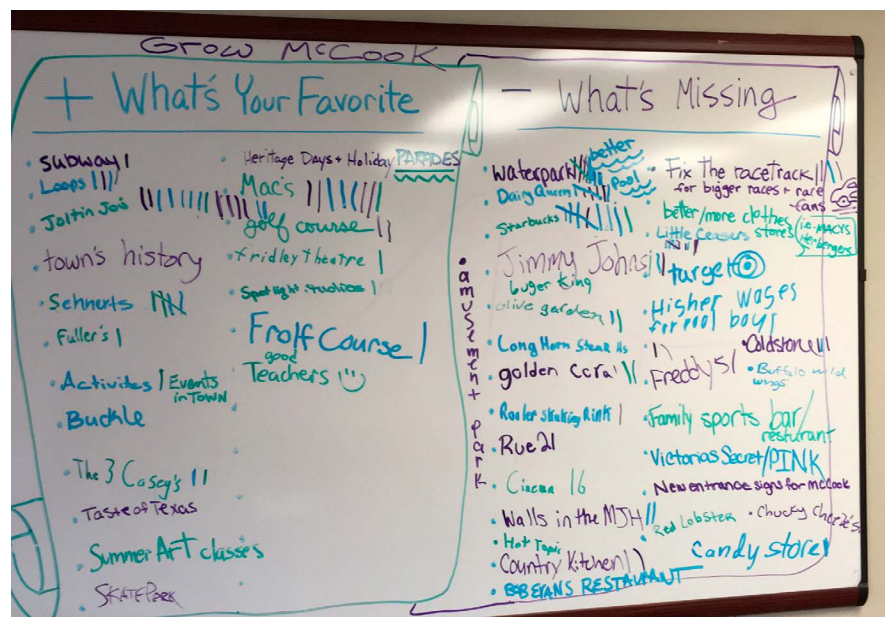 Grow McCook
+ What's Your Favorite
• Subway
• Loops
• Joltin Joe's
• town's history
• Sehnerts
• Fuller's
• Activites / Events
in TOWN
• Buckle
• The 3 Casey's
• Taste of Texas
• Summer Art classes
• SKATEPARK
• Heritage Days + Holiday PARADES
• Mac's
• golf course
• fridley theatre
• Spotlight studios
• Frolf Course
• good
Teachers
- What's Missing
• Waterpark
better
Pool
• Dairy Queen
• Starbucks
• Jimmy Johns
• burger King
• olive garden
• Long Horn Steak Hs
• golden Corral
• Roller skating Rink
• Rue 21
• Cinema 16
• Walls in the MJH
• Hot Topic
• Country Kitchen
• BOB EVANS RESTAURANT
• amusement park
• Fix the racetrack
for bigger races + race
fans
• better/more clothes
stores (i.e. MACYS
Herbergers)
• Little Ceasers
• target
• Higher wages
for pool boys
• Freddy's
• Coldstone
• Buffalo wild
wings
• Family sports bar/
resturant
• Victorias Secret/PINK
• New entrance signs for mccook
• Red Lobster
• Chucky Cheeze's
candy store